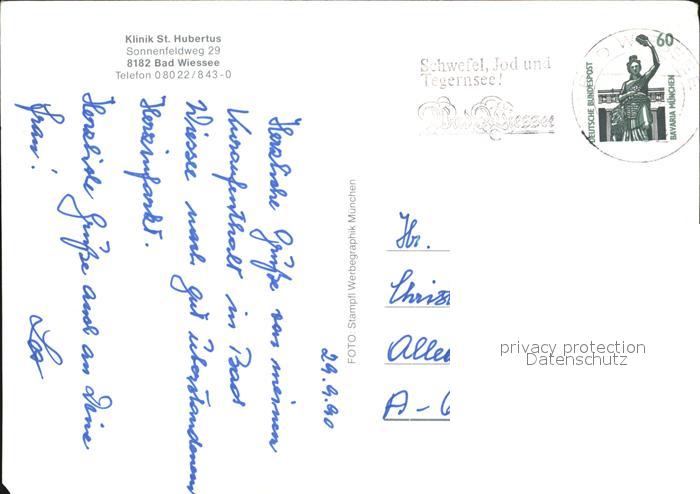 Klinik St. Hubertus
Sonnenfeldweg 29
8182 Bad Wiessee
Telefon 0 80 22 / 8 43 - 0
Schwefel, Jod und
Tegernsee!
Bad Wiessee
60
DEUTSCHE BUNDESPOST
BAVARIA MÜNCHEN
29.9.90
Herzliche Grüße von meinem
Kuraufenthalt in Bad
Wiessee nach gut überstandenem
Herzinfarkt.
Herzliche Grüße auch an Deine
Frau!
FOTO: Stampfl Werbegraphik München
Hr.
Christ
Alle
A-6
privacy protection
Datenschutz